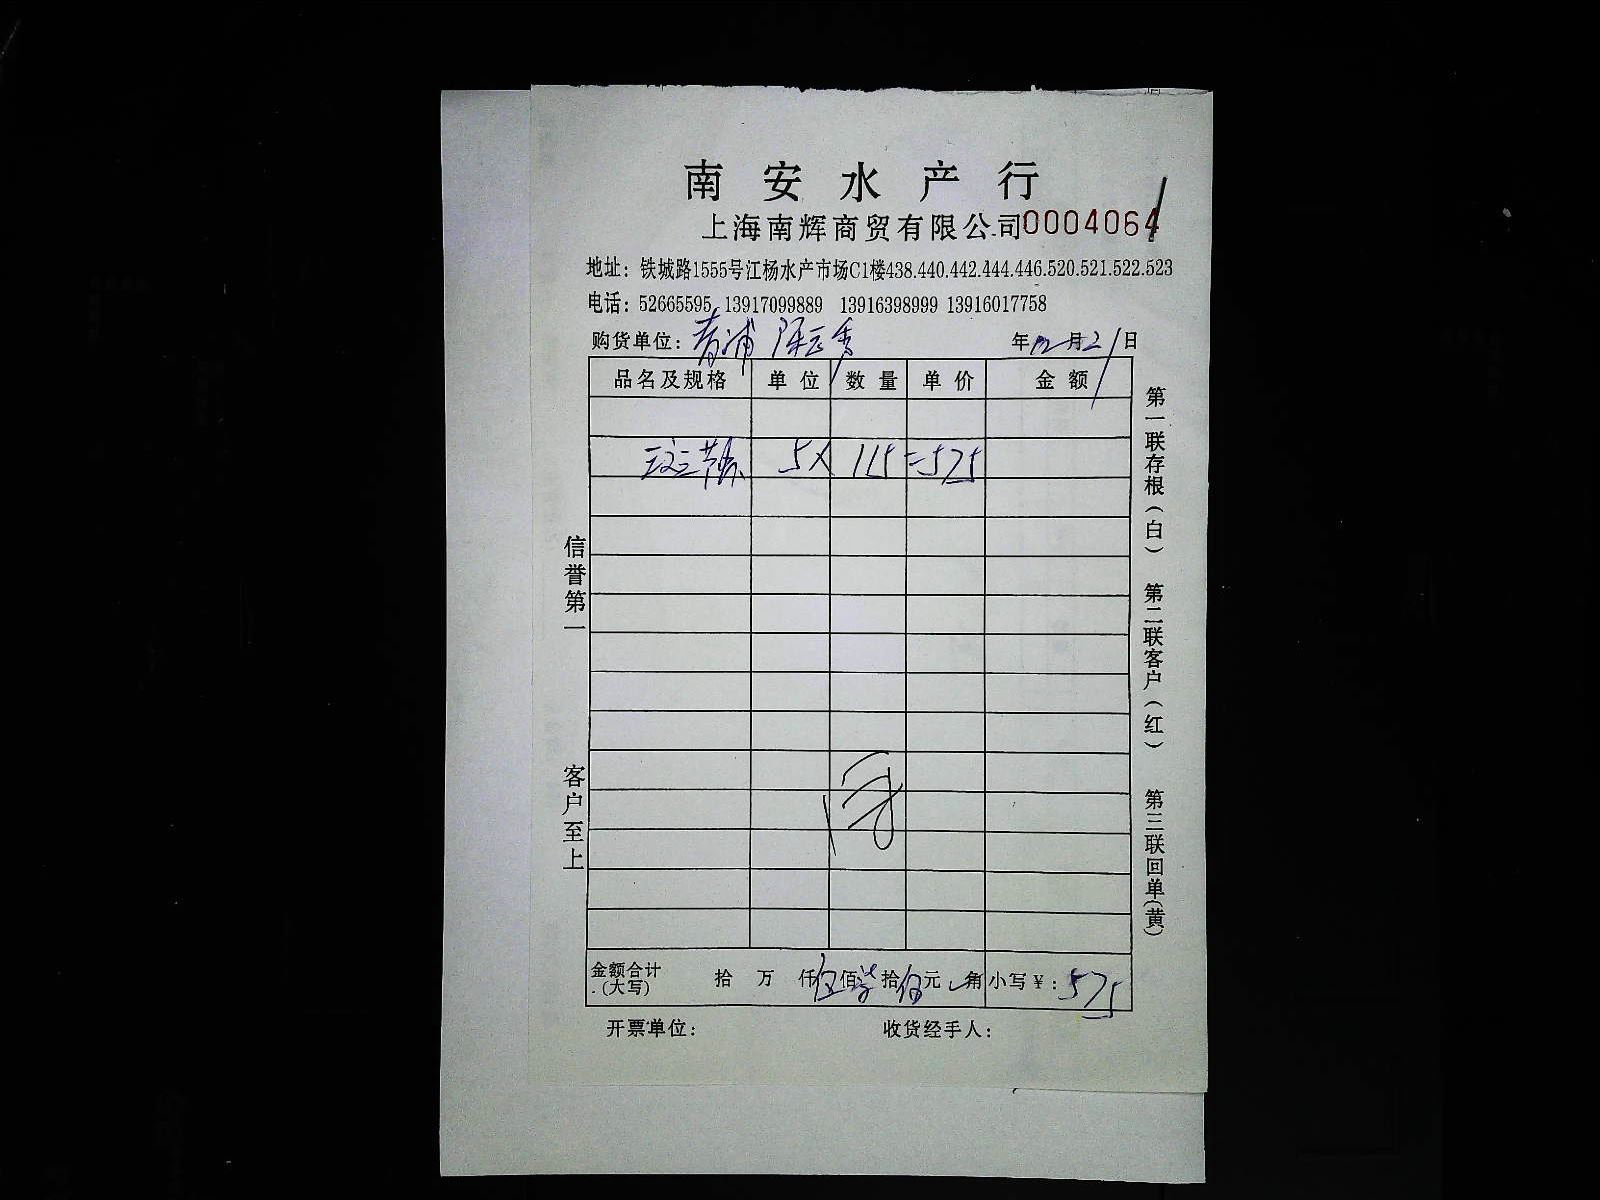 南安水产行
上海南辉商贸有限公司 0004064
地址：铁城路1555号江杨水产市场C1楼438.440.442.444.446.520.521.522.523
电话：52665595 13917099889 13916398999 13916017758
购货单位：青浦 年12月21日
品名及规格 单位 数量 单价 金额
5× 115 =575
信誉第一
客户至上
第一联存根（白） 第二联客户（红） 第三联回单（黄）
金额合计（大写） 拾 万 仟伍佰柒拾伍元 角 小写￥：575
开票单位： 收货经手人：